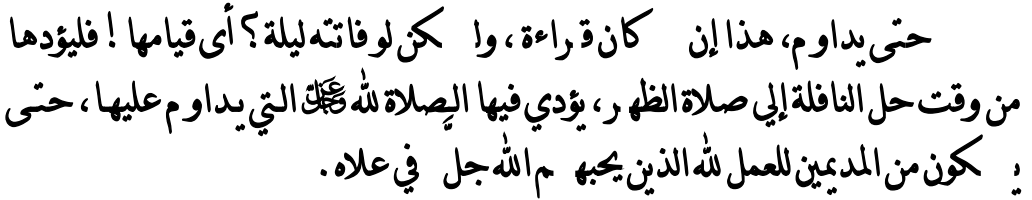 حتى يداوم، هذا إن كان قراءة، ولكن لو فاتته ليلة؟ أى قيامها! فليؤدها
من وقت حل النافلة إلي صلاة الظهر، يؤدي فيها الصلاة لله ﷺ التي يداوم عليها، حتى
يكون من المديمين للعمل لله الذين يحبهم الله جل في علاه.